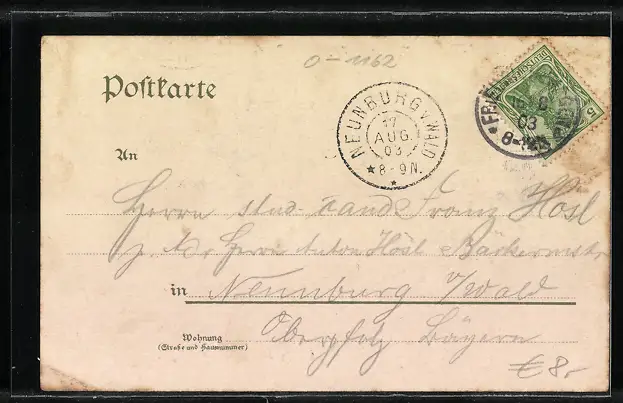 0-1162
Postkarte
NEUNBURG v/WALD
17
AUG.
03
★8-9N.
DEUTSCHES REICH
5
03
An
Herrn stud. cand. Franz Hösl
p. Adr. Herrn Anton Hösl Bäckermstr
in Neunburg v/Wald
Wohnung
(Straße und Hausnummer)
Oberpfalz Bayern
€ 8,-